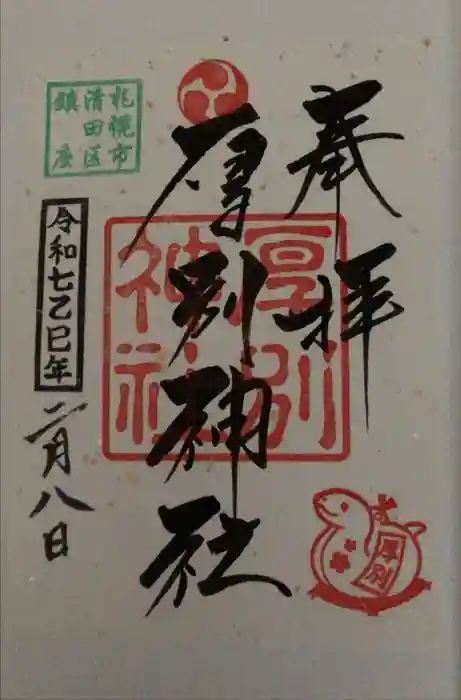 奉拝
厚別神社
厚別
神社
札幌市
清田区
鎮座
令和七乙巳年
二月八日
厚別